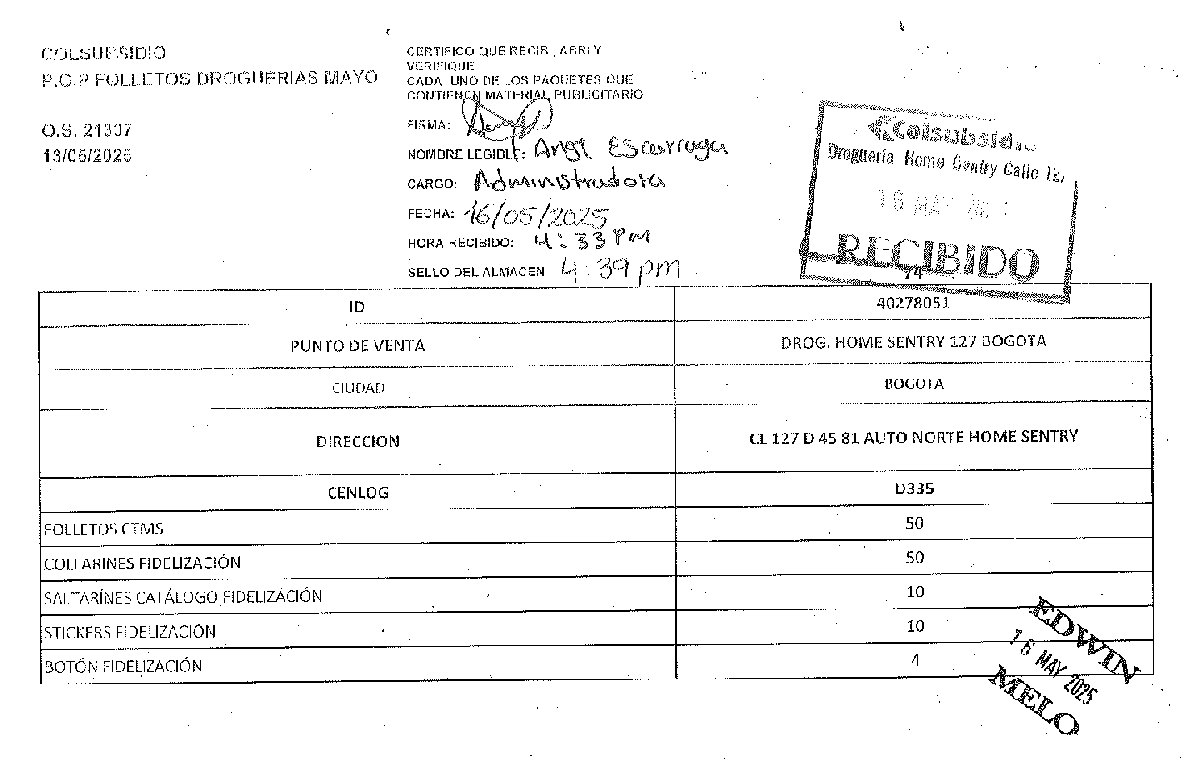 COLSUBSIDIO
P.O.P FOLLETOS DROGUERIAS MAYO
O.S. 21337
13/05/2025
CERTIFICO QUE RECIBI, ABRI Y
VERIFIQUE
CADA UNO DE LOS PAQUETES QUE
CONTIENEN MATERIAL PUBLICITARIO
FIRMA:
NOMBRE LEGIBLE: Angi Escarraga
CARGO: Administradora
FECHA: 16/05/2025
HORA RECIBIDO: 4:33 Pm
SELLO DEL ALMACEN 4:39 pm
Colsubsidio
Droguería Home Sentry Calle 127
16 MAY
RECIBIDO
ID 40278051
PUNTO DE VENTA DROG. HOME SENTRY 127 BOGOTA
CIUDAD BOGOTA
DIRECCION CL 127 D 45 81 AUTO NORTE HOME SENTRY
CENLOG D335
FOLLETOS CTMS 50
COLLARINES FIDELIZACIÓN 50
SALTARÍNES CATÁLOGO FIDELIZACIÓN 10
STICKERS FIDELIZACIÓN 10
BOTÓN FIDELIZACIÓN 4
EDWIN
16 MAY 2025
MELO